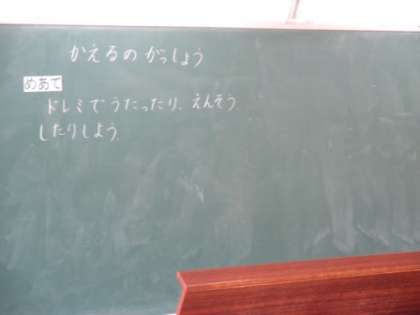 かえるの がっしょう
めあて
ドレミで うたったり、えんそう
したりしよう。